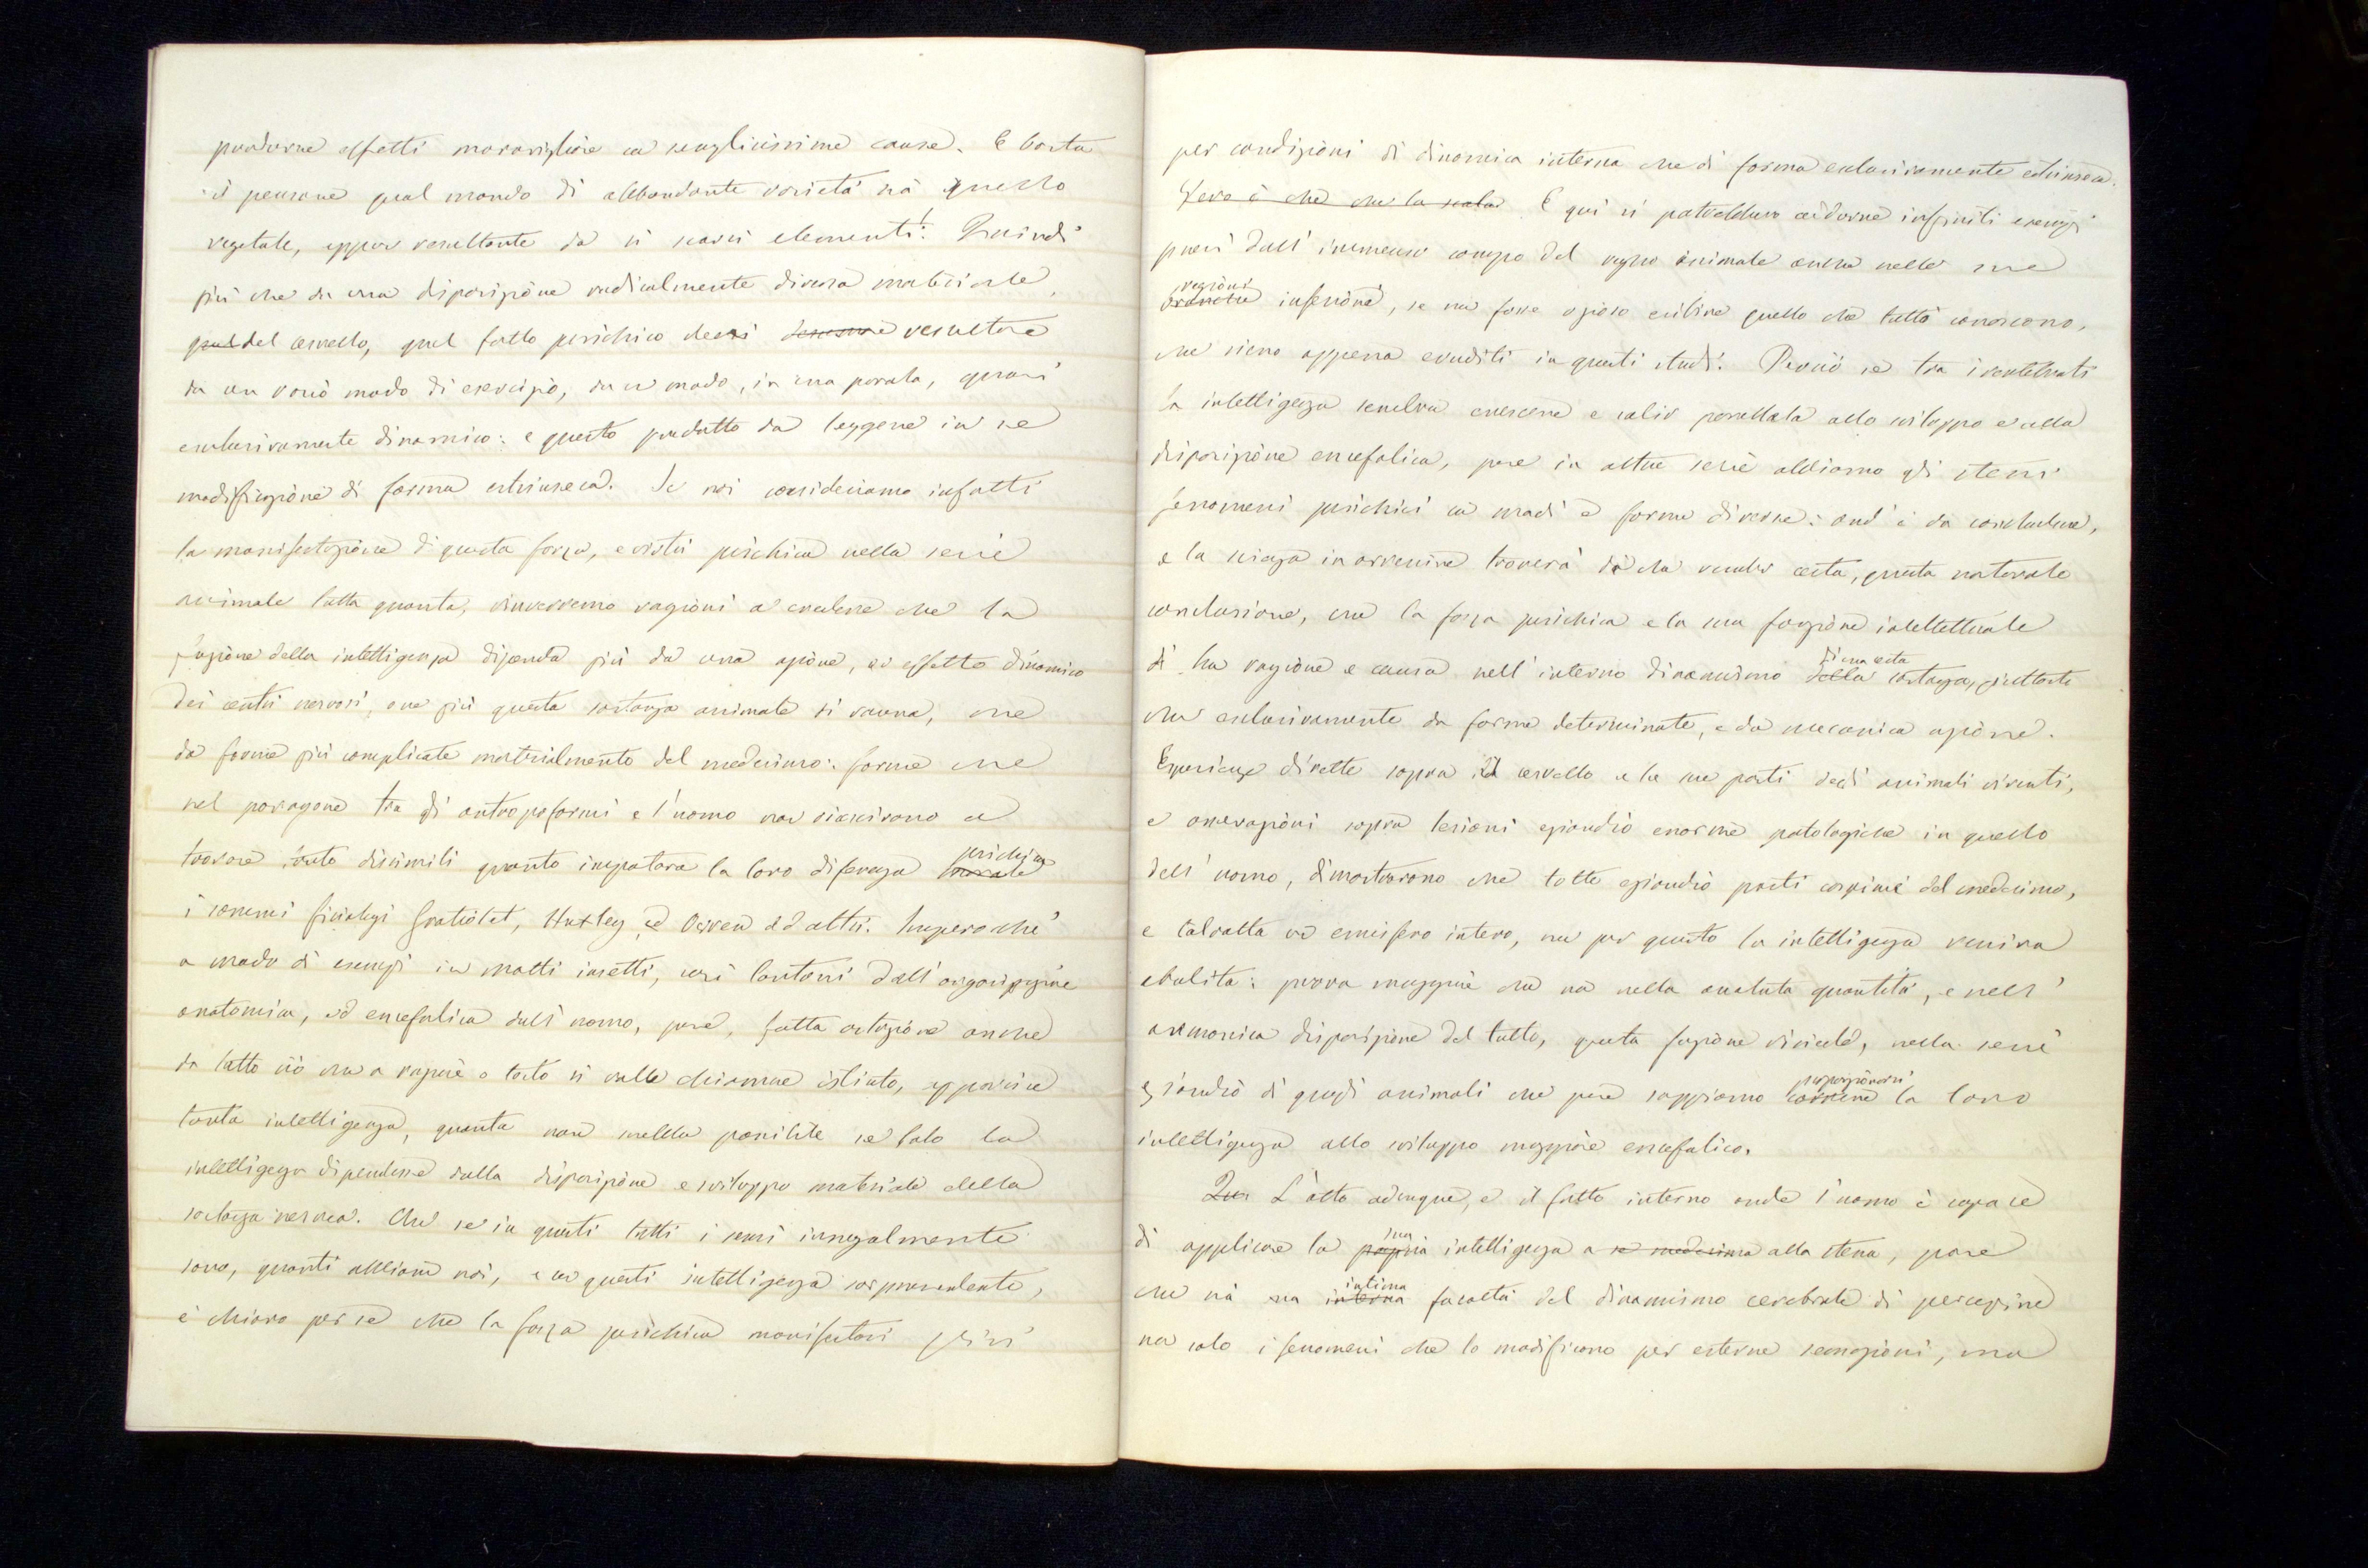 produrne effetti maravigliosi con semplicissime cause. E basta
il pensare qual mondo di abbondante varietà sia quello
vegetale, eppur resultante da sì scarsi elementi! Quindi
più che da una disposizione radicalmente diversa materiale,
del cervello, quel fatto psichico deesi resultare
da un vario modo di esercizio, da un modo, in una parola, quasi
esclusivamente dinamico: e questo prodotto da leggere in se
modificazione di forma estrinseca. Se noi consideriamo infatti
la manifestazione di questa forza, e virtù psichica nella serie
animale tutta quanta, rinverremo ragioni a credere che la
funzione della intelligenza dipenda più da una azione, ed effetto dinamico
dei centri nervosi, ove più questa sostanza animale si rauna, che
da forme più complicate materialmente del medesimo: forme che
nel paragone tra gli antropoformi e l'uomo non riescirono a
trovare tanto dissimili quanto importava la loro differenza psichica
i sommi fisiologi Gratiolet, Huxley ed Owen ed altri. Imperocchè
a modo di esempi in molti insetti, così lontani dall'organizzazione
anatomica, ed encefalica dell'uomo, pure, fatta astrazione anche
da tutto ciò che a ragione o torto si volle chiamare istinto, apparisce
tanta intelligenza, quanta non sarebbe possibile se solo la
intelligenza dipendesse dalla disposizione e sviluppo materiale della
sostanza nervea. Che se in questi tutti i sensi inegualmente
sono, quanti abbiamo noi, e in questi intelligenza sorprendente,
è chiaro per se che la forza psichica manifestasi più
per condizioni di dinamica interna che di forma esclusivamente estrinseca.
Vero è che che la scala E qui si potrebbero addurre infiniti esempi
presi dall'immenso campo del regno animale anche nelle sue
regioni inferiori, se non fosse ozioso esibire quello che tutti conoscono,
che sieno appena eruditi in questi studi. Perciò se tra i vertebrati
la intelligenza sembra crescere e salir parallela allo sviluppo e alla
disposizione encefalica, pure in altre serie abbiamo gli stessi
fenomeni psichici con modi e forme diverse: ond'è da concludere,
e la scienza in avvenire troverà di che render certa, questa naturale
conclusione, che la forza psichica e la sua funzione intellettuale
si ha ragione e causa nell'interno dinamismo di una certa sostanza, piuttosto
che esclusivamente da forme determinate, e da meccanica azione.
Esperienze dirette sopra il cervello e le sue parti degli animali viventi,
e osservazioni sopra lesioni eziandio enorme patologiche in quello
dell'uomo, dimostrarono che tolte eziandio parti cospicue del medesimo,
e talvolta un emisfero intero, non per questo la intelligenza veniva
abolita: prova maggiore che non nella assoluta quantità, e nell'
armonica disposizione del tutto, questa funzione risiede, nella serie
eziandio di quegli animali che pure sappiamo proporzionarsi la loro
intelligenza allo sviluppo maggiore encefalico.
L'atto adunque, e il fatto interno onde l'uomo è capace
di applicare la sua intelligenza a se medesima alla stessa, pare
che sia una intima facoltà del dinamismo cerebrale di percepire
non solo i fenomeni che lo modificano per esterne sensazioni, ma